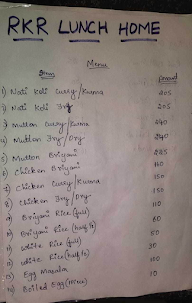 RKR LUNCH HOME
Menu
Items Amount
1) Nati Koli Curry/Kurma 205
2) Nati Koli Fry 205
3) Mutton Curry/Kurma 240
4) Mutton Fry/Dry 240
5) Mutton Briyani 225
6) Chicken Briyani 160
7) Chicken Curry/Kurma 150
8) Chicken Fry/Dry 150
9) Briyani Rice (full) 110
10) Briyani Rice (half) 60
11) White Rice (full) 50
12) White Rice (half) 30
13) Egg Masala 100
14) Boiled Egg 10